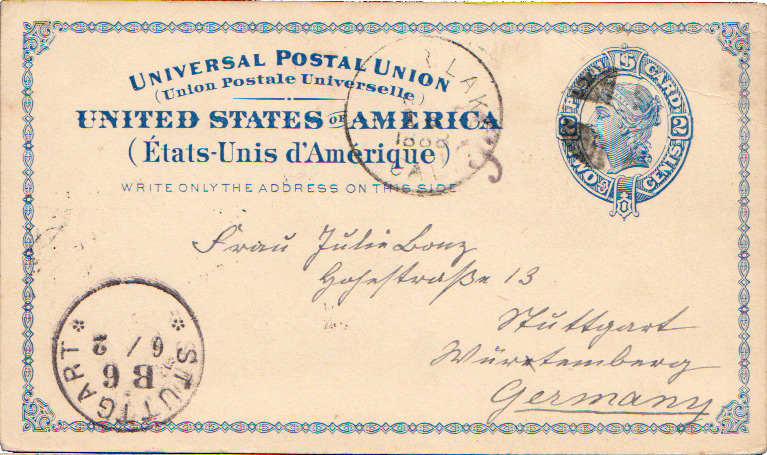 UNIVERSAL POSTAL UNION
(Union Postale Universelle)
UNITED STATES OF AMERICA
(États-Unis d'Amérique)
WRITE ONLY THE ADDRESS ON THIS SIDE
LAKE
CAL
POSTAL CARD
2 2
TWO CENTS
Frau Julie Bonz
Hohestraße 13
Stuttgart
Württemberg
Germany
STUTTGART
B 6
6/2